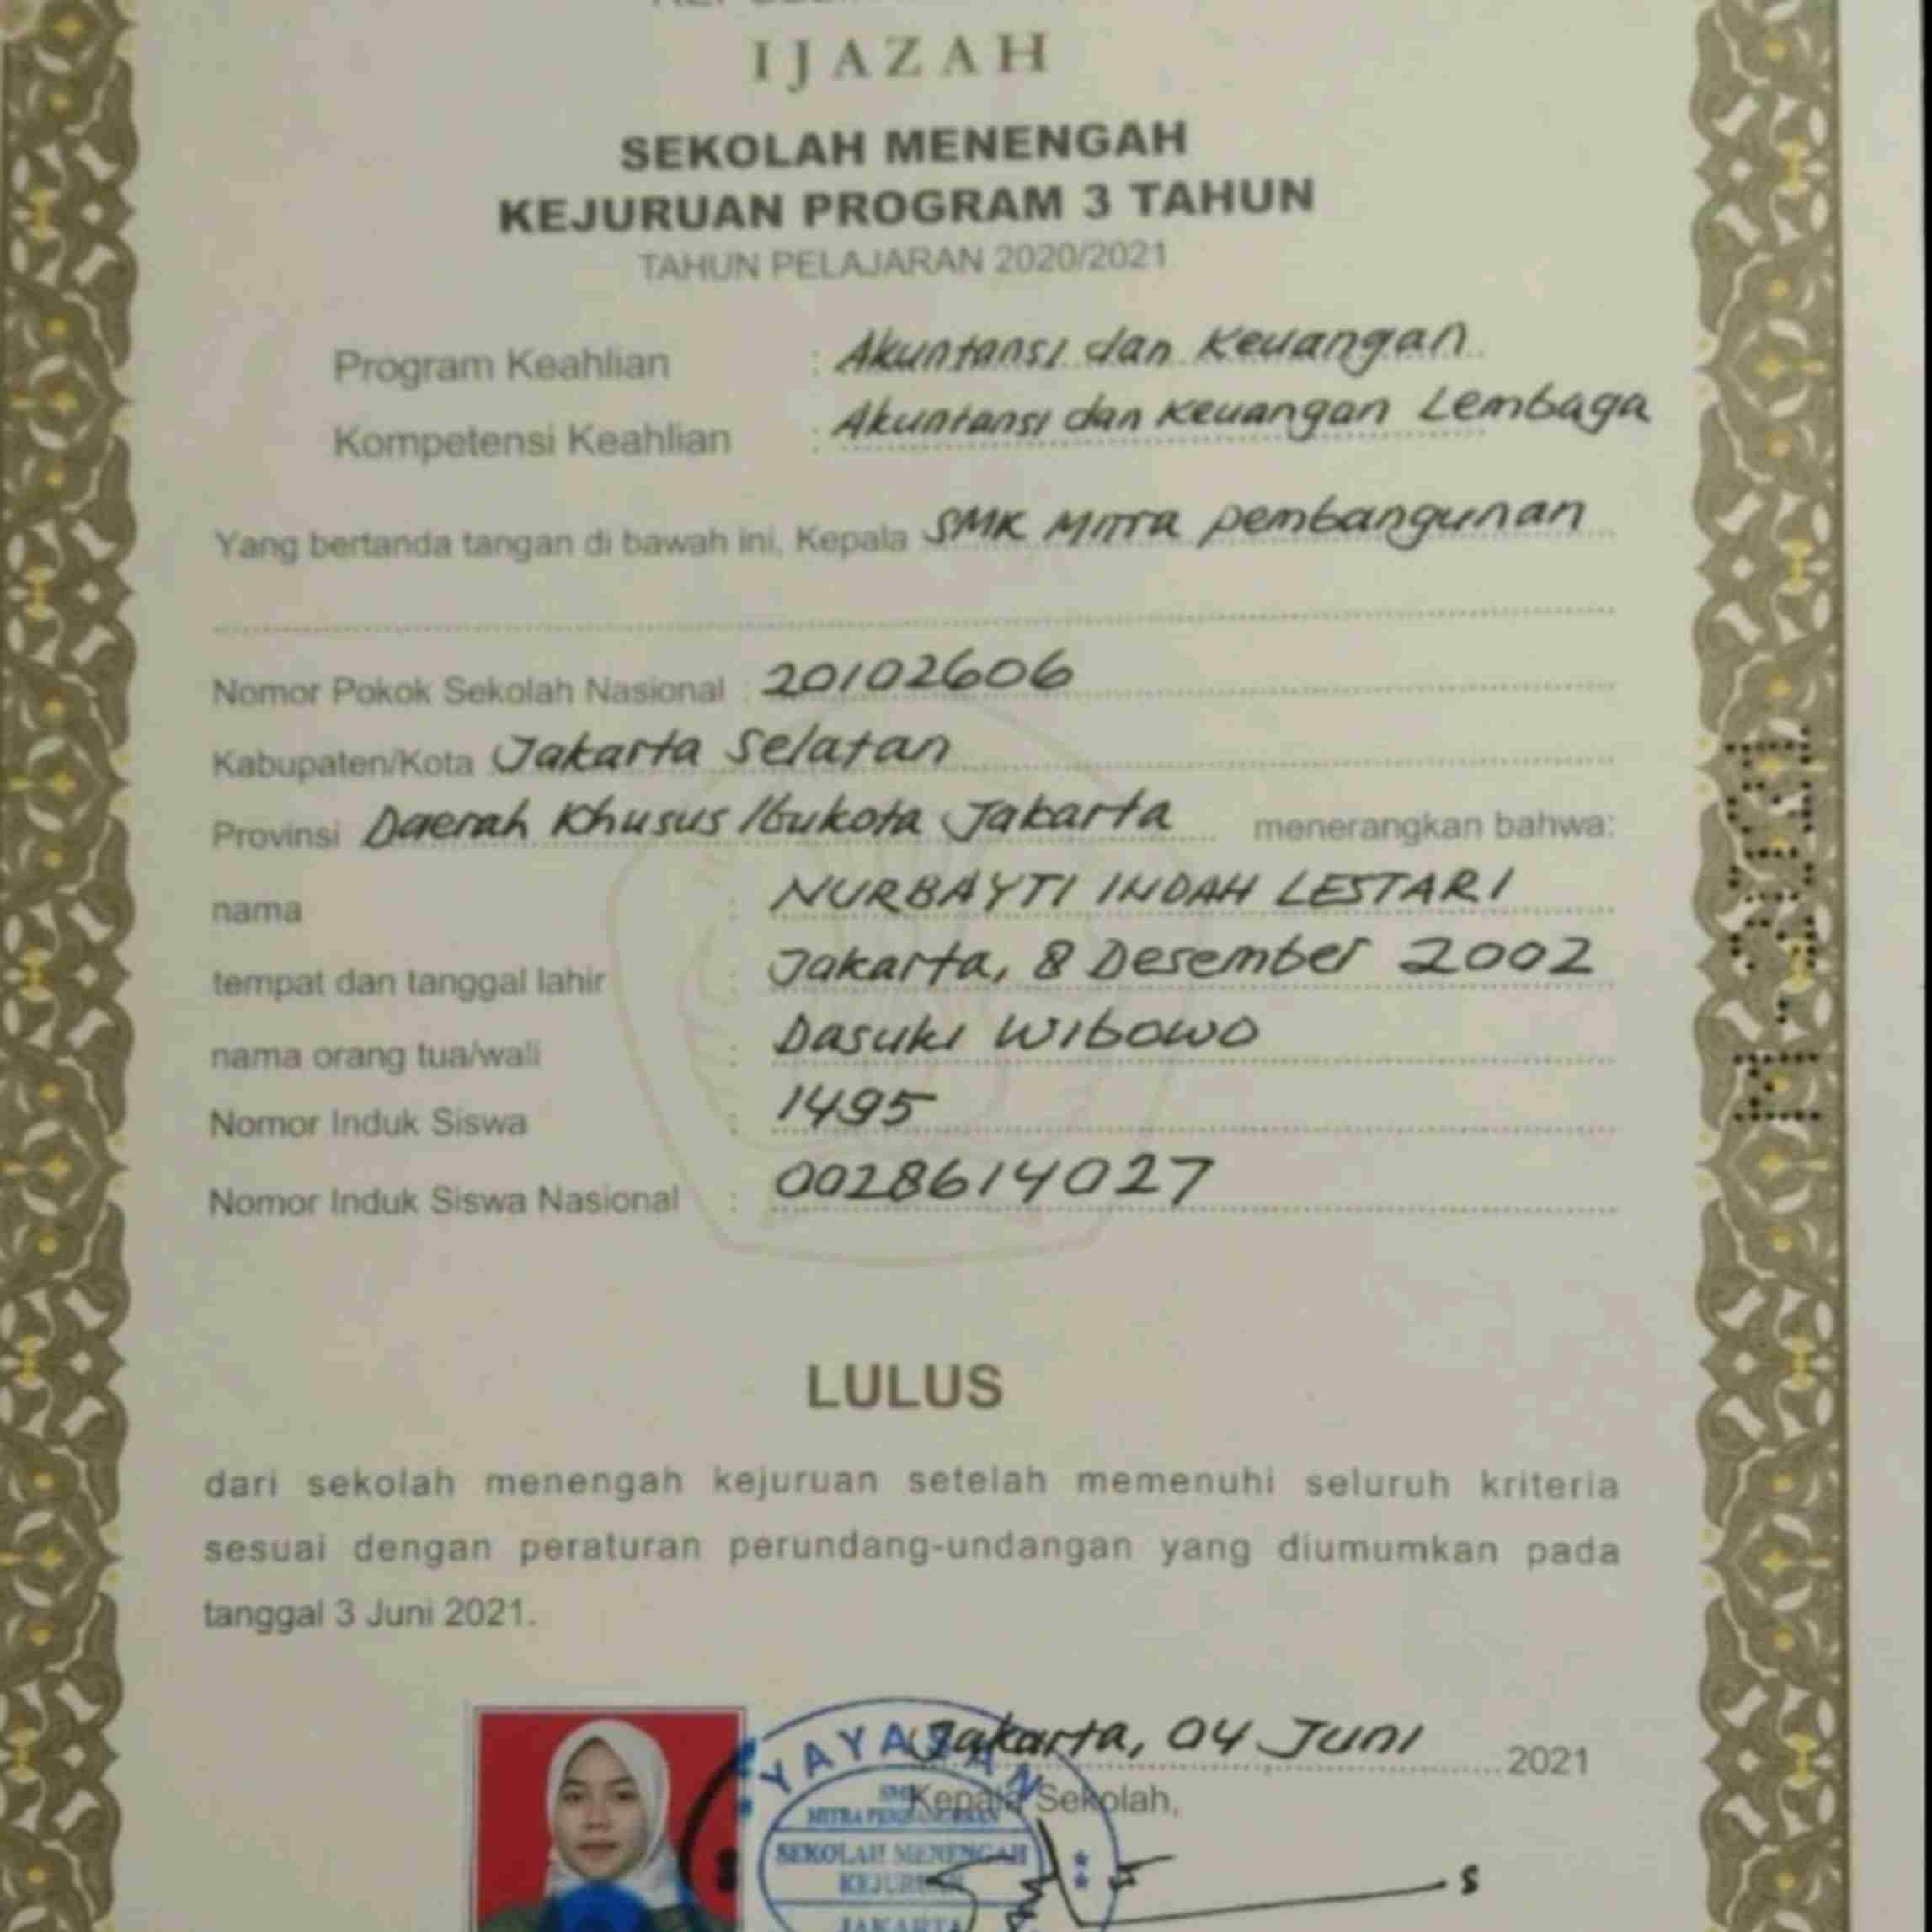 IJAZAH
SEKOLAH MENENGAH
KEJURUAN PROGRAM 3 TAHUN
TAHUN PELAJARAN 2020/2021
Program Keahlian : Akuntansi dan Keuangan
Kompetensi Keahlian : Akuntansi dan Keuangan Lembaga
Yang bertanda tangan di bawah ini, Kepala SMK Mitra pembangunan
Nomor Pokok Sekolah Nasional : 20102606
Kabupaten/Kota Jakarta Selatan
Provinsi Daerah Khusus Ibukota Jakarta menerangkan bahwa:
nama : NURBAYTI INDAH LESTARI
tempat dan tanggal lahir : Jakarta, 8 Desember 2002
nama orang tua/wali : Dasuki Wibowo
Nomor Induk Siswa : 1495
Nomor Induk Siswa Nasional : 0028614027
LULUS
dari sekolah menengah kejuruan setelah memenuhi seluruh kriteria
sesuai dengan peraturan perundang-undangan yang diumumkan pada
tanggal 3 Juni 2021.
Jakarta, 04 Juni 2021
Kepala Sekolah,
YAYASAN
SMK
MITRA PEMBANGUNAN
SEKOLAH MENENGAH
KEJURUAN
JAKARTA